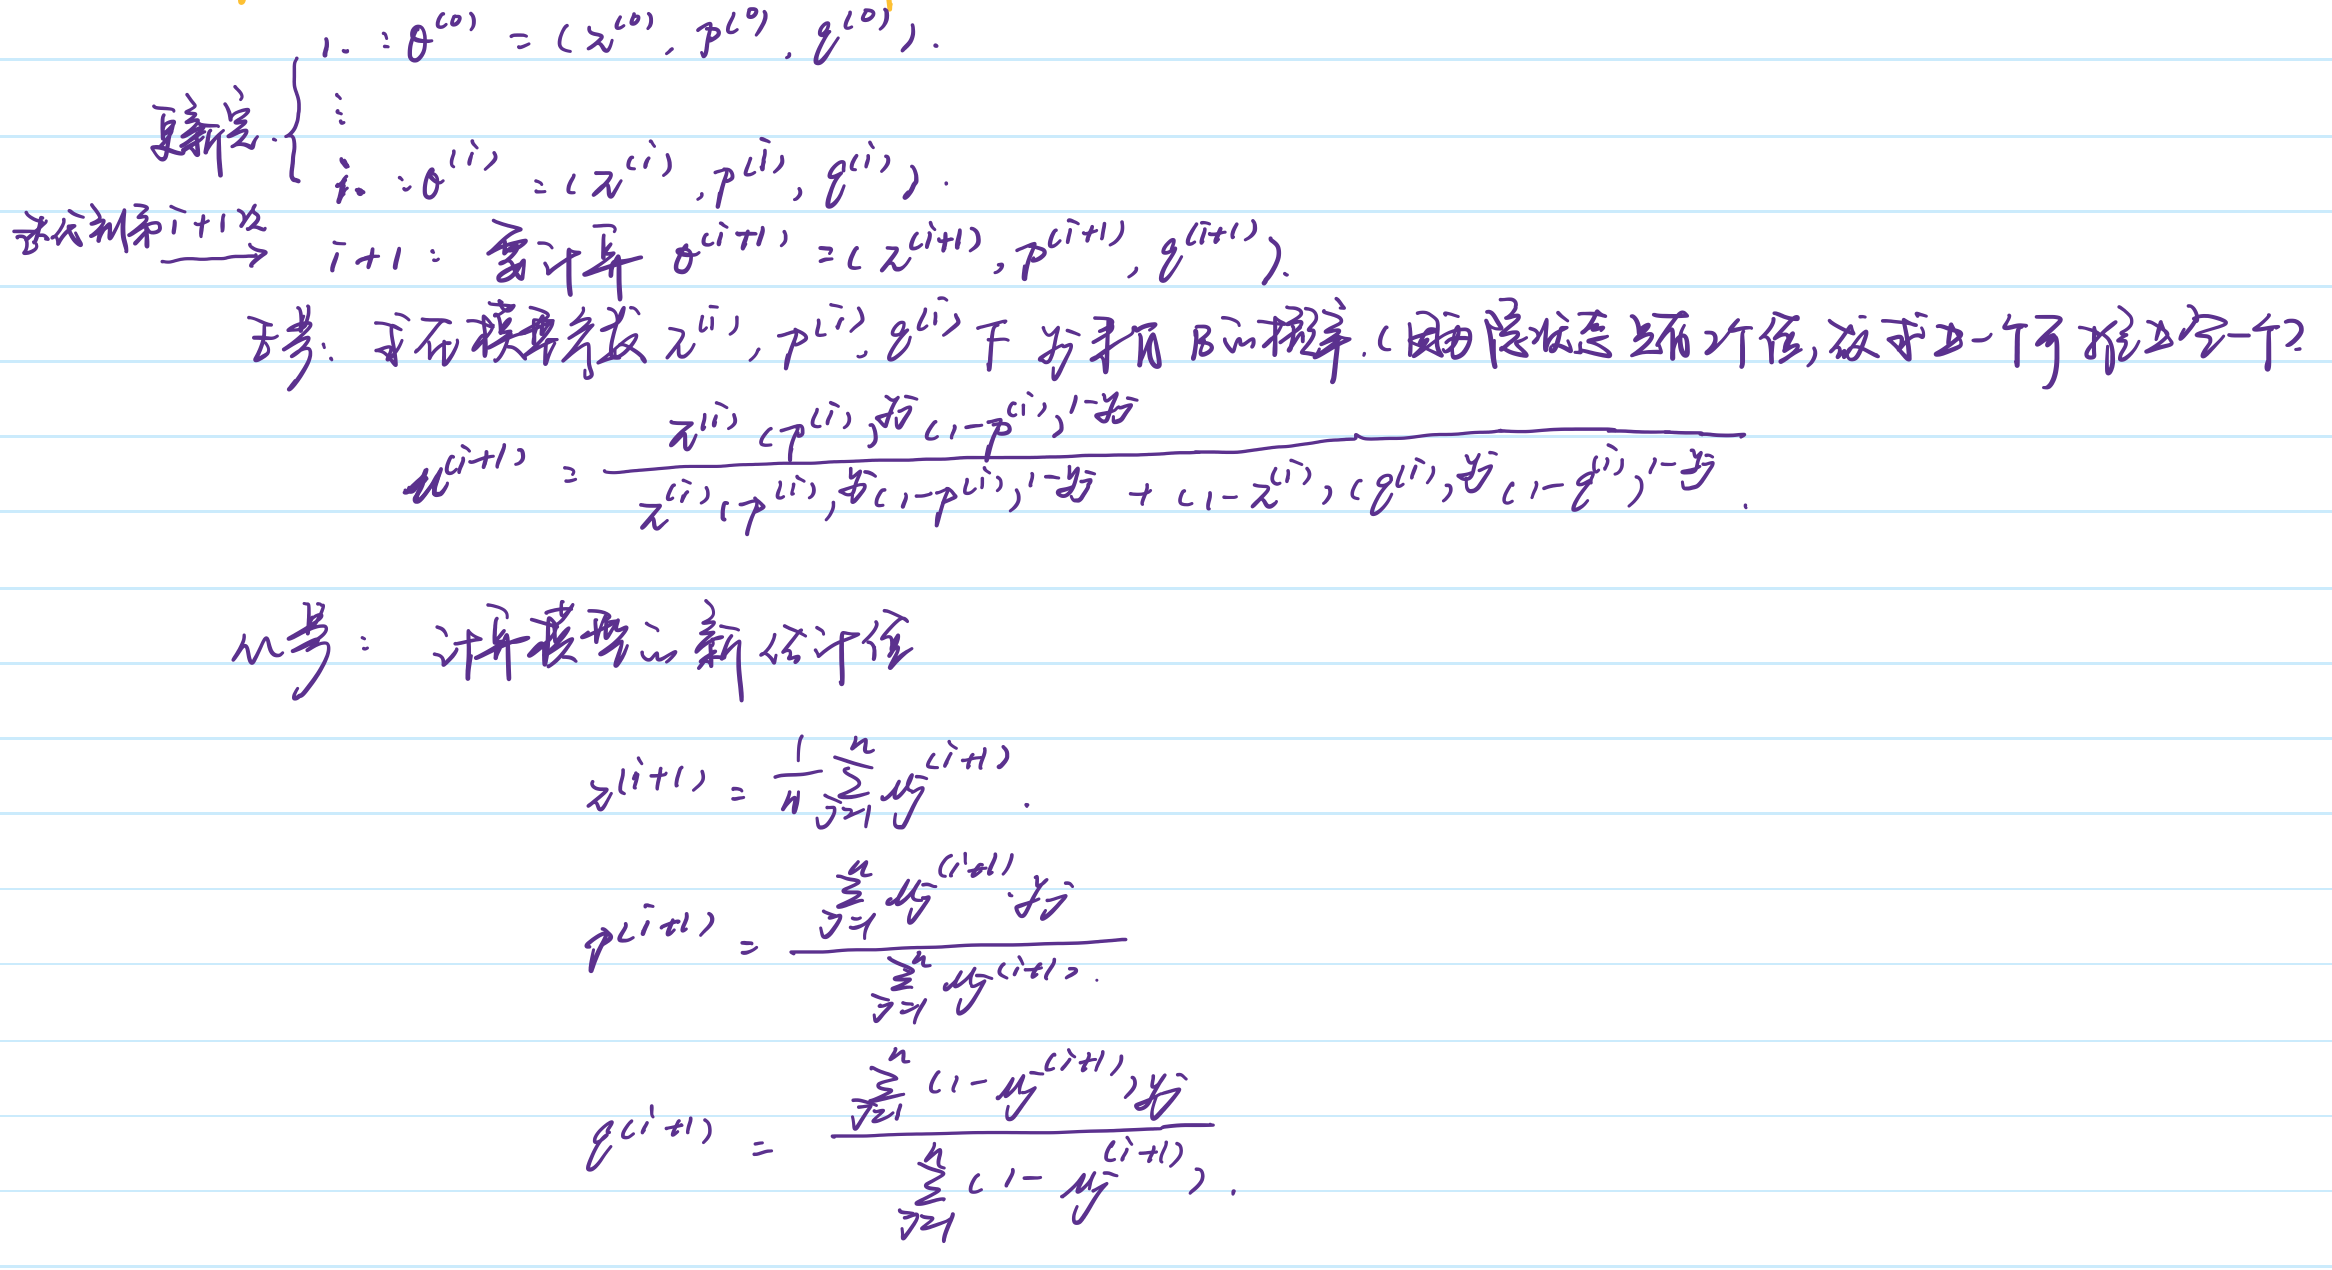 1. : θ^(0) = (π^(0), p^(0), q^(0)).
更新完. { ⋮
i. : θ^(i) = (π^(i), p^(i), q^(i)).
迭代到第i+1次 → i+1: 需计算 θ^(i+1) = (π^(i+1), p^(i+1), q^(i+1)).
E步: 求在模型参数 π^(i), p^(i), q^(i) 下 yj 来自 B的概率. (因为隐状态只有2个值, 故求出一个可推出另一个)
μ^(i+1) = π^(i) (p^(i))^yj (1-p^(i))^1-yj / π^(i) (p^(i))^yj (1-p^(i))^1-yj + (1-π^(i)) (q^(i))^yj (1-q^(i))^1-yj .
M步: 计算模型的新估计值
π^(i+1) = 1/n Σ_j=1^n μj^(i+1) .
p^(i+1) = Σ_j=1^n μj^(i+1) · yj / Σ_j=1^n μj^(i+1) .
q^(i+1) = Σ_j=1^n (1-μj^(i+1)) yj / Σ_j=1^n (1-μj^(i+1)) .